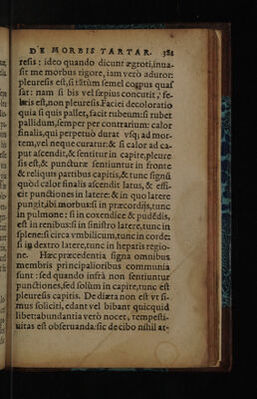 DE MORBIS TARTAR. 381
resis: ideo quando dicunt ægroti, inua-
sit me morbus rigore, iam verò aduror:
pleuresis est, si tãtùm semel corpus quas
sat: nam si bis vel sæpius concutit, fe-
bris est, non pleuresis. Faciei decoloratio
quia si quis pallet, facit rubeum: si rubet
pallidum, semper per contrarium: calor
finalis, qui perpetuò durat vsq; ad mor-
tem, vel neque curatur: & si calor ad ca-
put ascendit, & sentitur in capite, pleure
sis est, & puncturæ sentiuntur in fronte
& reliquis partibus capitis, & tunc signũ
quòd calor finalis ascendit latus, & effi-
cit punctiones in latere: & in quo latere
pungit, ibi morbus: si in præcordiis, tunc
in pulmone: si in coxendice & pudẽdis,
est in renibus: si in sinistro latere, tunc in
splene: si circa vmbilicum, tunc in corde:
si in dextro latere, tunc in hepatis regio-
ne. Hæc præcedentia signa omnibus
membris principalioribus communia
sunt: sed quando infrà non sentiuntur
punctiones, sed solùm in capite, tunc est
pleuresis capitis. De diæta non est vt si-
mus soliciti, edant vel bibant quicquid
libet: abundantia verò nocet, tempesti-
uitas est obseruanda: sic de cibo nihil at-